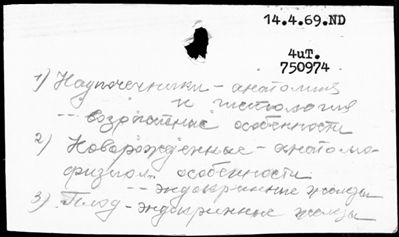 14.4.69.ND
4иТ.
750974
1) Надпочечники - анатомия
и гистология
-- возрастные особенности
2) Новорожденные - анатомо-
физиол. особенности
-- эндокринные железы
3) Плод - эндокринные железы